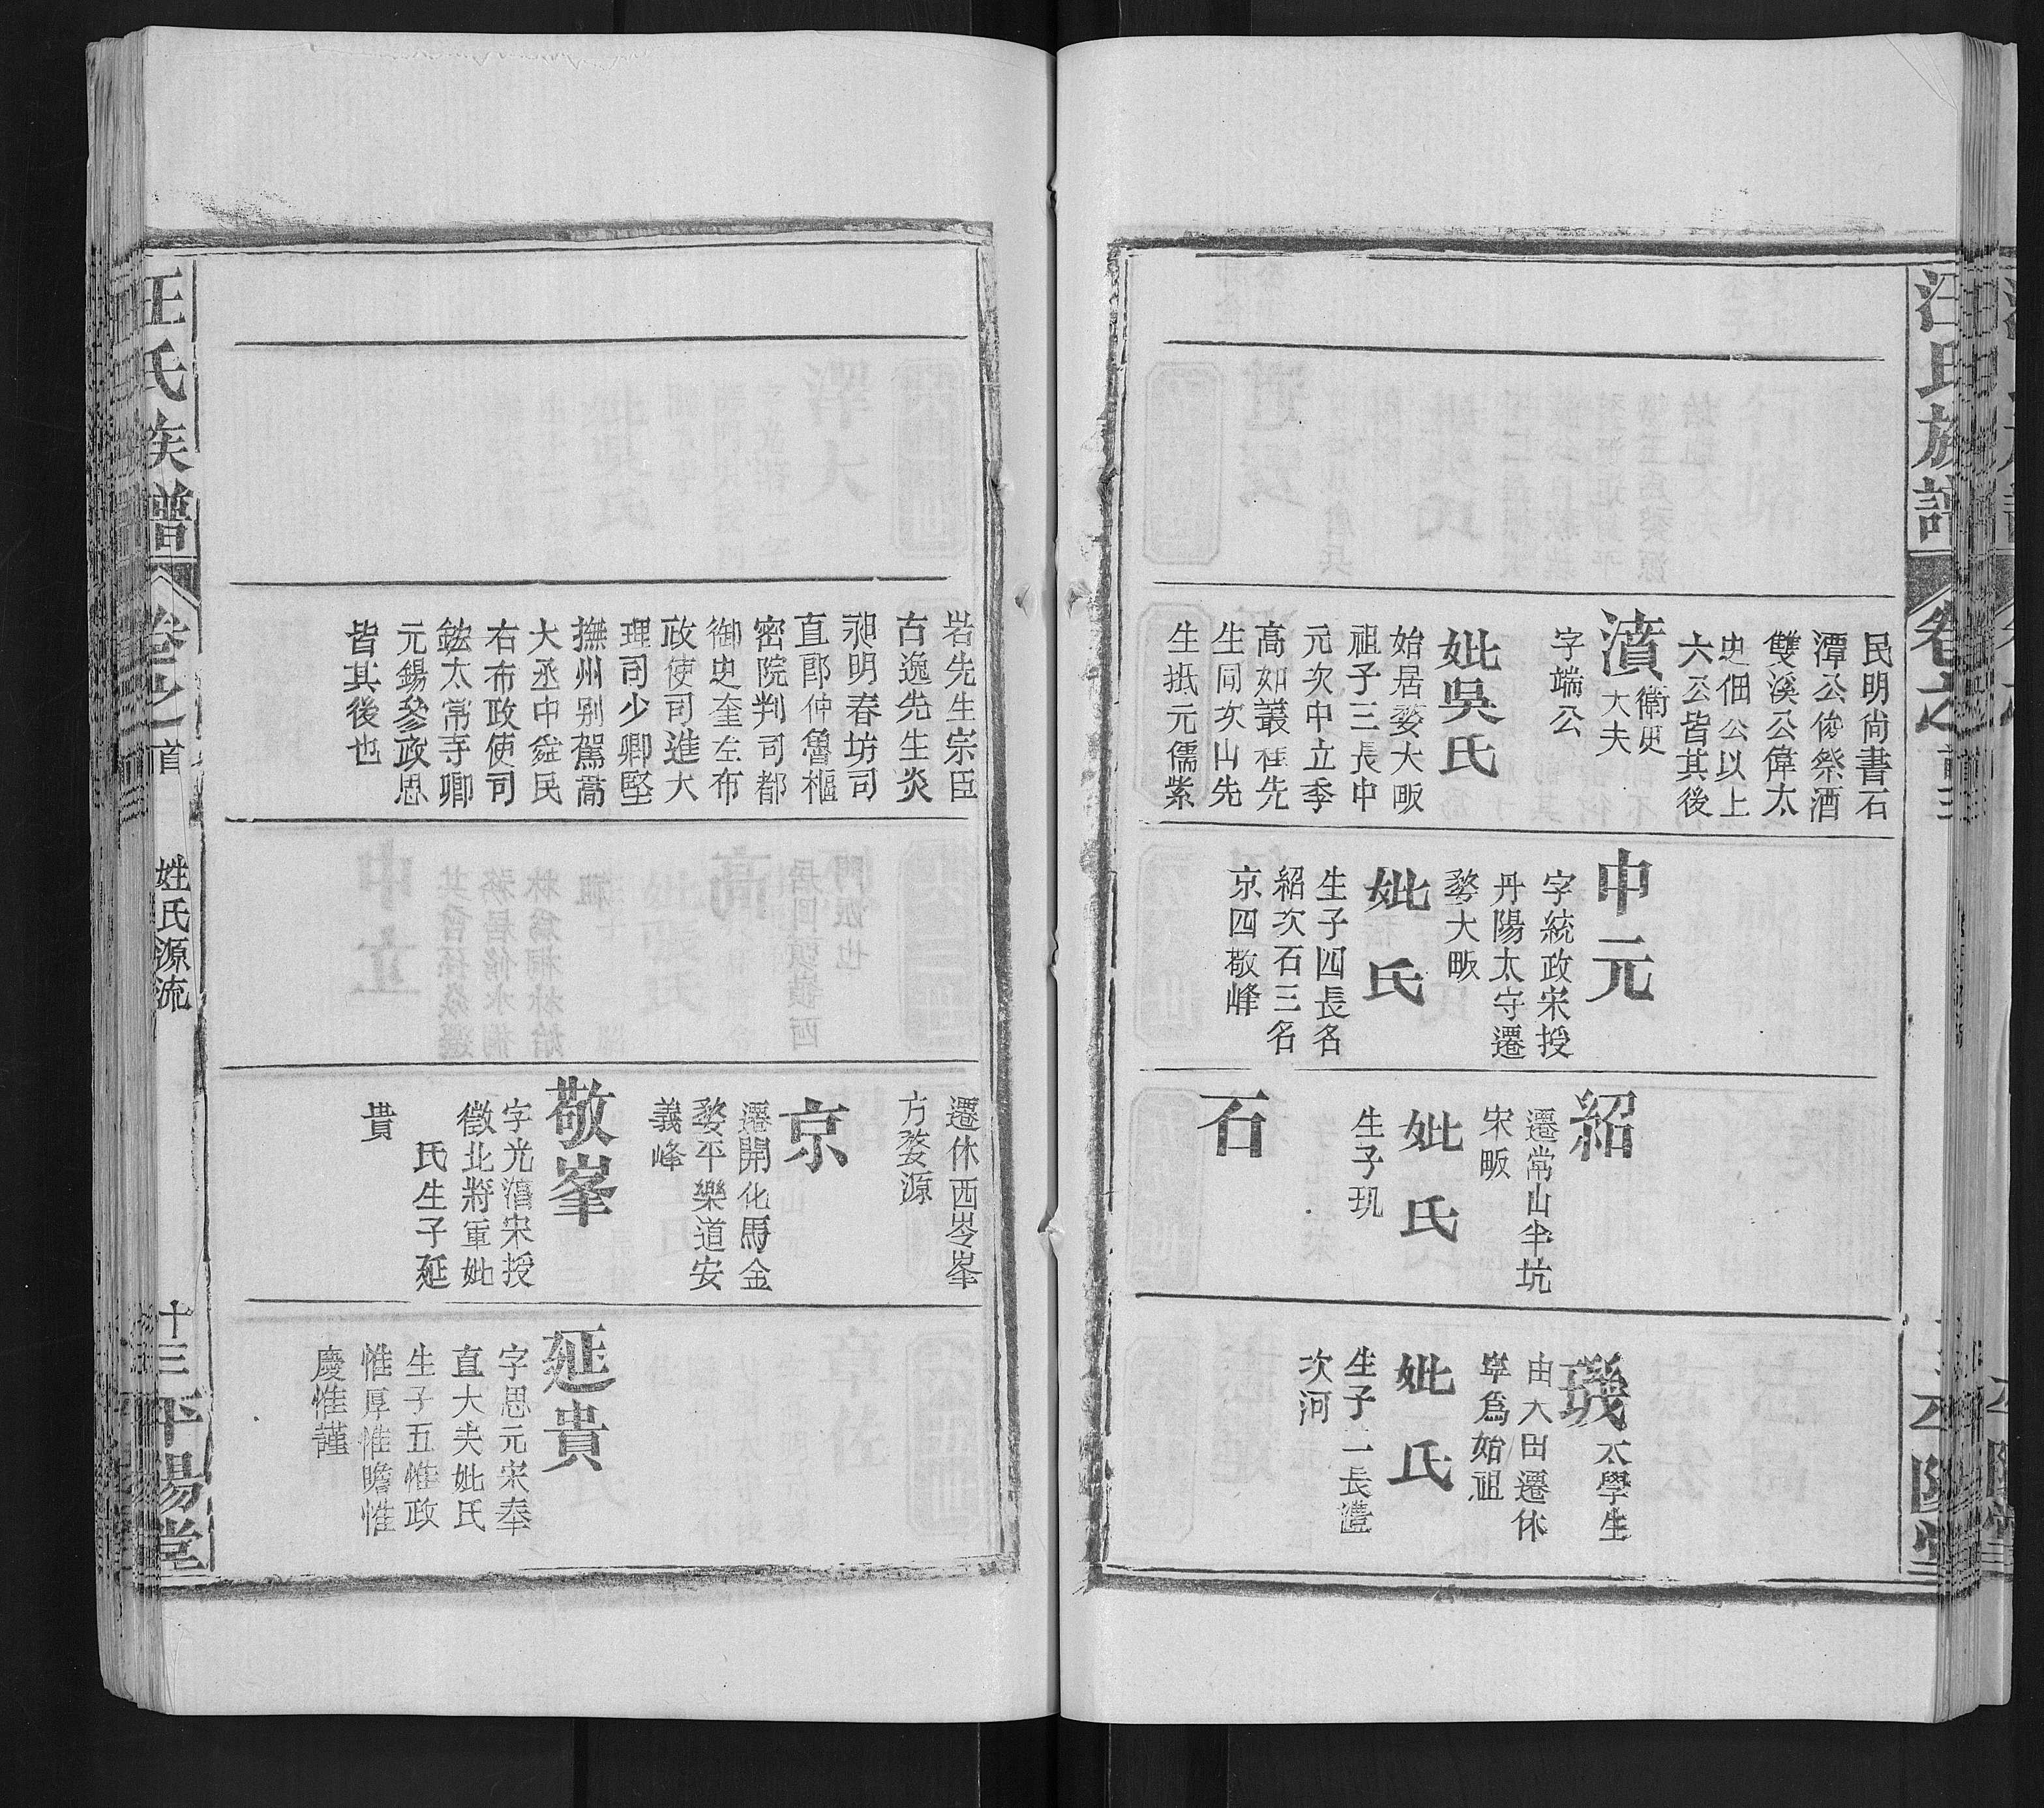 汪氏族譜
民明尚書石
潭公俊祭酒
雙溪公偉太
史佃公以上
六公皆其後
濆
衛史
大夫
字端公
妣吳氏
始居婺大畈
祖子三長中
元次中立季
高如叢桂先
生同次山先
生抵元儒紫
中元
字統政宋授
丹陽太守遷
婺大畈
妣氏
生子四長名
紹次石三名
京四敬峰
紹
遷常山半坑
宋畈
妣氏
生子玑
石
璣
太學生
由大田遷休
寧為始祖
妣氏
生子二長灃
次河
岩先生宗臣
古逸先生炎
昶明春坊司
直郎仲魯樞
密院判司都
御史奎左布
政使司進大
理司少卿堅
撫州别駕鬵
大丞中鎰民
右布政使司
鋐太常寺卿
元錫參政思
皆其後也
遷休西岑峯
方婺源
京
遷開化馬金
婺平樂道安
義峰
敬峯
字光溍宋授
徵北將軍妣
氏生子延
貴
延貴
字思元宋奉
直大夫妣氏
生子五惟政
惟厚惟瞻惟
慶惟謹
汪氏族譜
卷之首
姓氏源流
十三
平陽堂